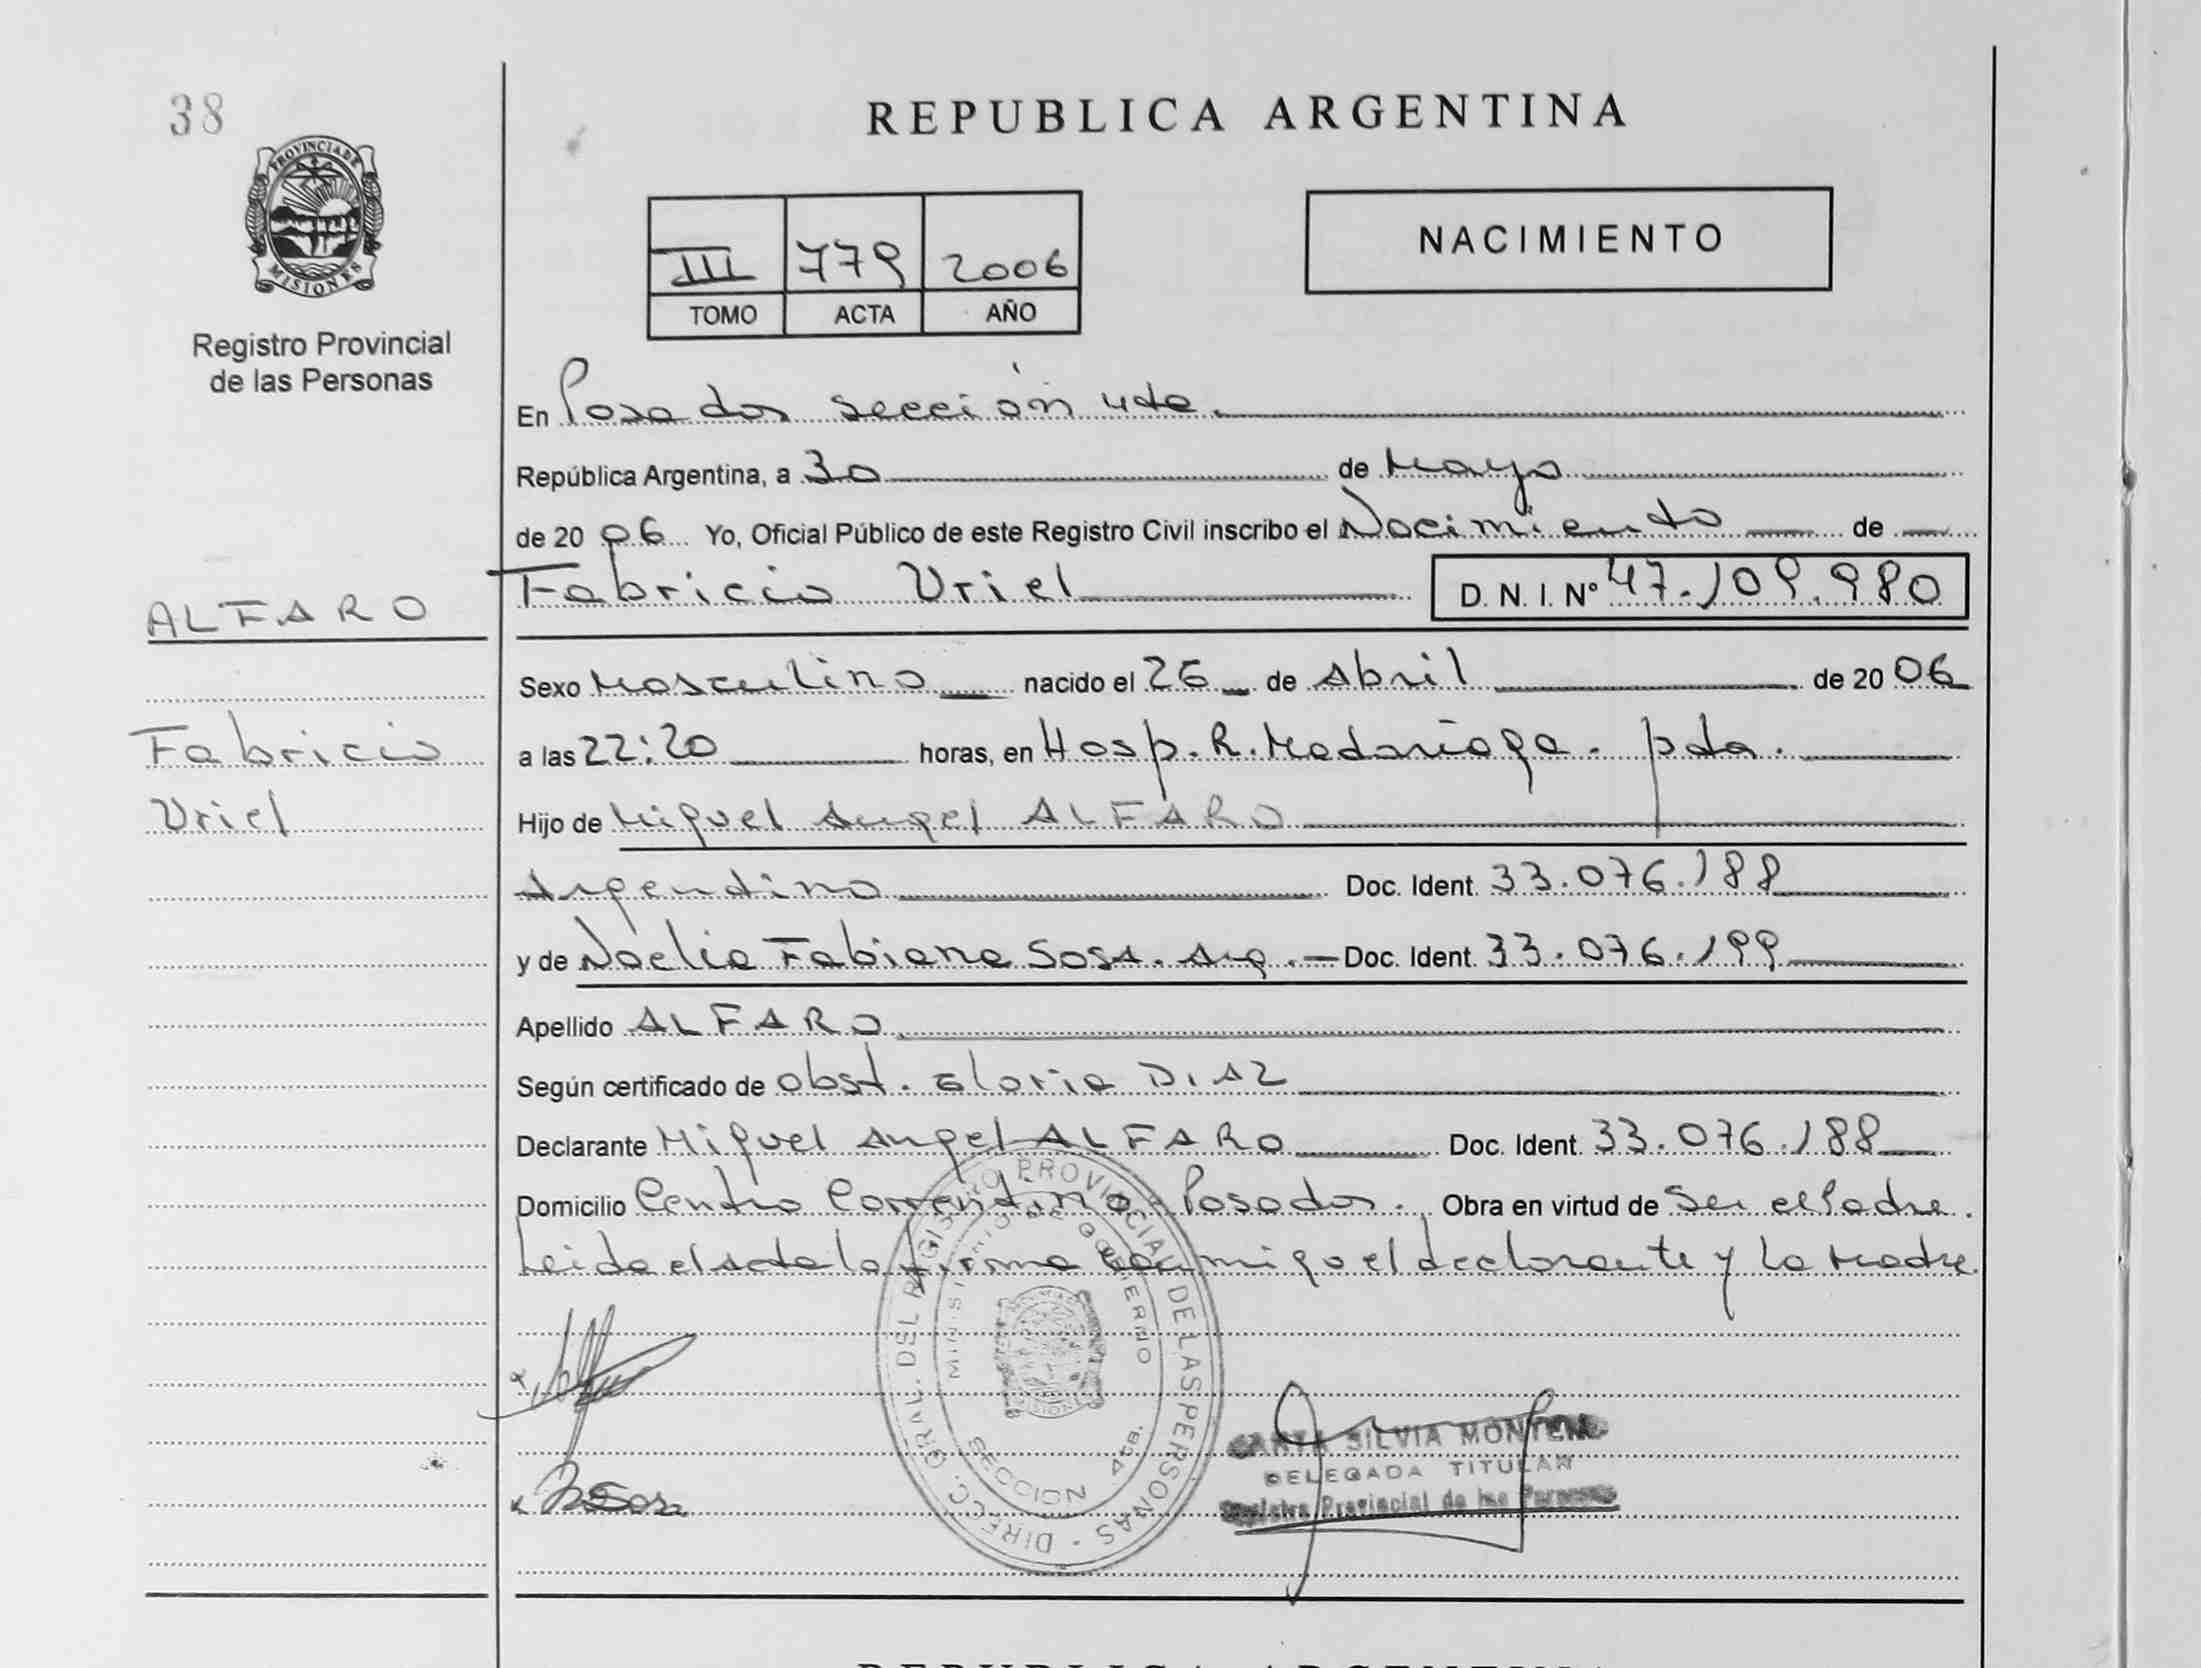 38
PROVINCIA DE
MISIONES
Registro Provincial
de las Personas
REPUBLICA ARGENTINA
III 779 2006
TOMO ACTA AÑO
NACIMIENTO
En Posadas sección 4ta.
República Argentina, a 30 de Mayo
de 2006 Yo, Oficial Público de este Registro Civil inscribo el Nacimiento de
Fabricio Uriel D. N. I. Nº 47.109.980
ALFARO
Fabricio
Uriel
Sexo Masculino nacido el 26 de Abril de 2006
a las 22:20 horas, en Hosp. R. Madariaga. pda.
Hijo de Miguel Angel ALFARO
Argentino Doc. Ident. 33.076.188
y de Noelia Fabiana SOSA. Arg. Doc. Ident. 33.076.199
Apellido ALFARO
Según certificado de obst. Gloria DIAZ
Declarante Miguel Angel ALFARO Doc. Ident. 33.076.188
Domicilio Centro Correntino Posadas. Obra en virtud de Ser el Padre.
Leida el acta la firma conmigo el declarante y la Madre.
DIRECC. GRAL. DEL REGISTRO PROVINCIAL DE LAS PERSONAS
MINISTERIO DE GOBIERNO
SECCION 4ta.
SILVIA
DELEGADA TITULAR
Registro Provincial de las Personas
REPUBLICA ARGENTINA